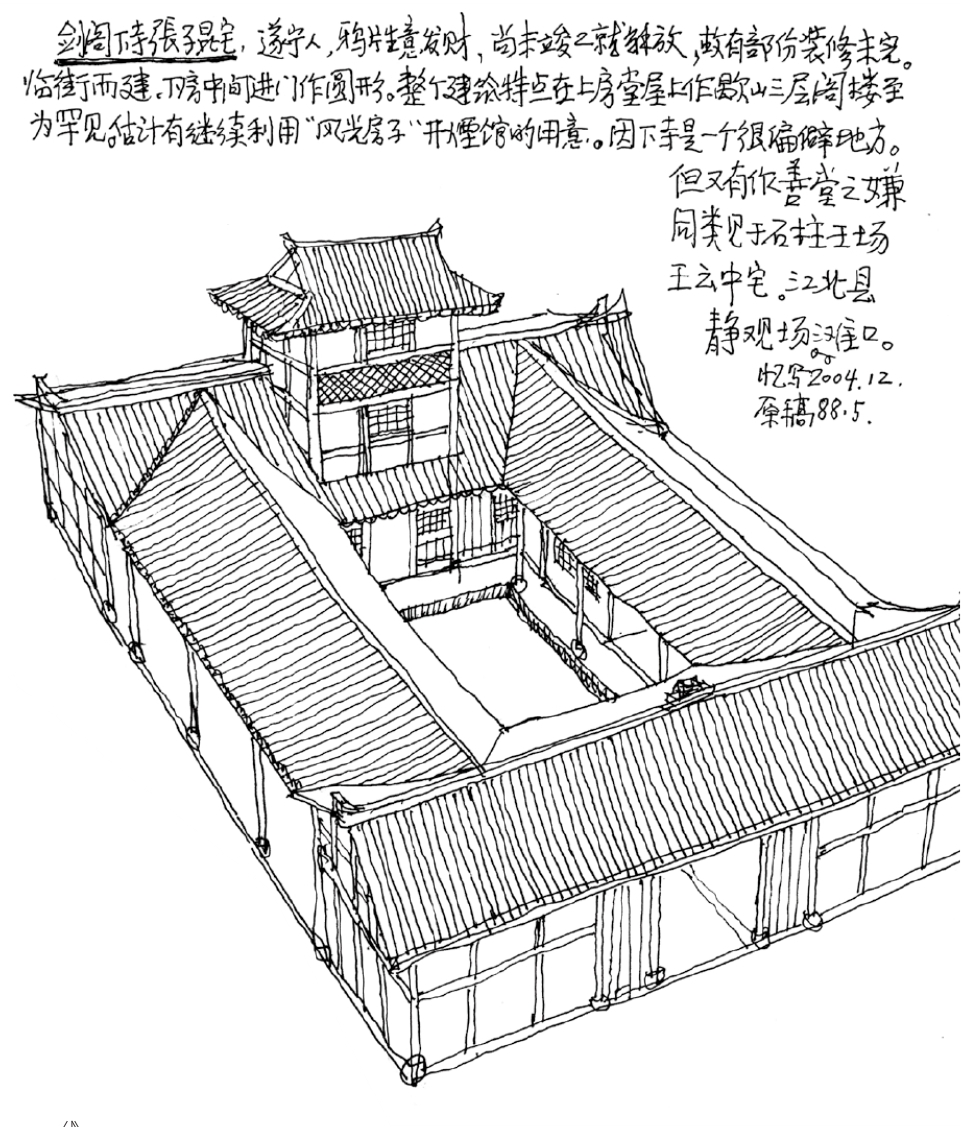 剑阁下寺張子昆宅，遂宁人，鸦片生意发财，尚未竣工就解放，故有部份装修未完。
临街而建，下房中间进门作圆形。整个建筑特点在上房堂屋上作歇山三层阁楼至
为罕见。估计有继续利用“风光房子”开煙馆的用意。因下寺是一个很偏僻地方。
但又有作善堂之嫌
同类见于石柱王场
王云中宅。江北县
静观场滩口。
忆写2004.12.
原稿88.5.